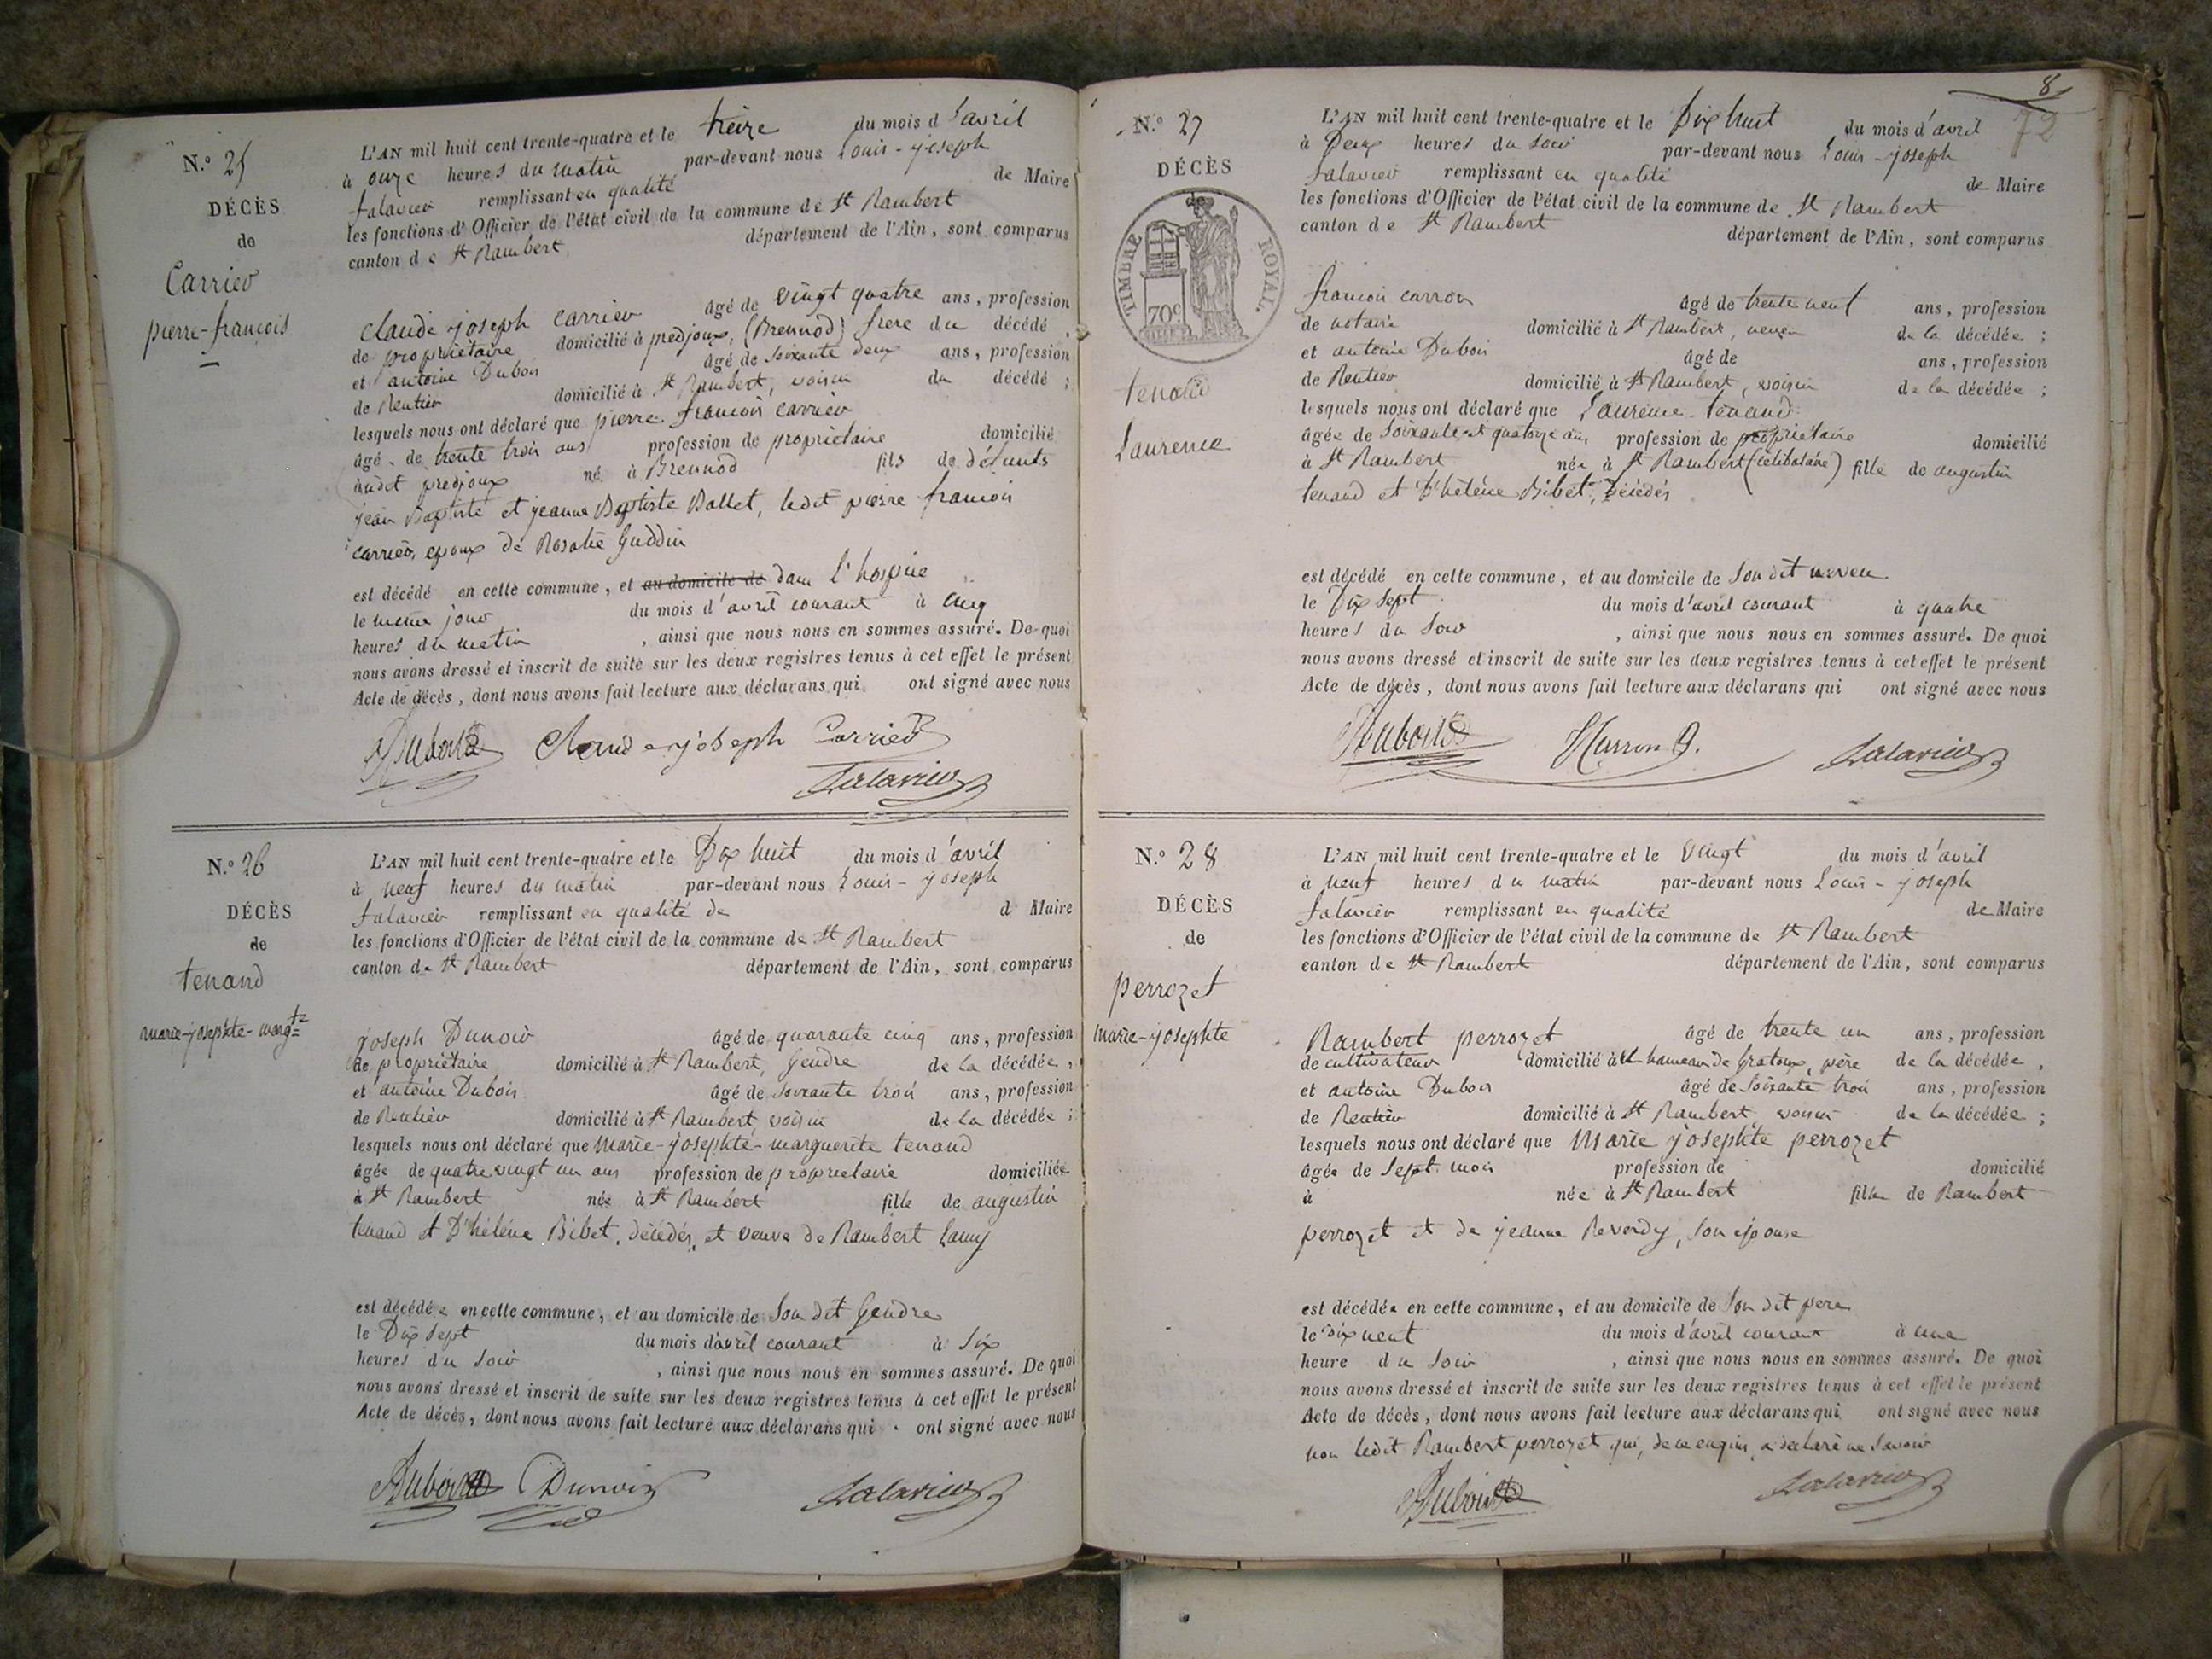 N.º 25
DÉCÈS
de
Carrier
pierre-françois
L'AN mil huit cent trente-quatre et le treize du mois d'avril
à onze heures du matin par-devant nous Louis-joseph
Salavier remplissant en qualité de Maire
les fonctions d'Officier de l'état civil de la commune de St Rambert
canton de St Rambert département de l'Ain, sont comparus
Claude joseph Carrier âgé de vingt quatre ans, profession
de propriétaire domicilié à predjoux, (Brennod) frere du décédé,
et antoine Dubois âgé de soixante deux ans, profession
de Rentier domicilié à St Rambert, voisin du décédé;
lesquels nous ont déclaré que pierre françois Carrier
âgé de trente trois ans profession de propriétaire domicilié
audit predjoux né à Brennod fils de défunts
jean Baptiste et jeanne Baptiste Ballet, ledit pierre françois
carrier, epoux de Rosalie Guddin
est décédé en cette commune, et au domicile de dans l'hospice
le meme jour du mois d'avril courant à cinq
heures du matin, ainsi que nous nous en sommes assuré. De quoi
nous avons dressé et inscrit de suite sur les deux registres tenus à cet effet le présent
Acte de décès, dont nous avons fait lecture aux déclarans qui ont signé avec nous
Dubois Claude joseph Carrier
Salavier
N.º 26
DÉCÈS
de
tenand
marie-josephte-margte
L'AN mil huit cent trente-quatre et le Dix huit du mois d'avril
à neuf heures du matin par-devant nous Louis-joseph
Salavier remplissant en qualité de d Maire
les fonctions d'Officier de l'état civil de la commune de St Rambert
canton de St Rambert département de l'Ain, sont comparus
joseph Dunoir âgé de quarante cinq ans, profession
de propriétaire domicilié à St Rambert, Gendre de la décédée,
et antoine Dubois âgé de soixante trois ans, profession
de Rentier domicilié à St Rambert, voisin de la décédée;
lesquels nous ont déclaré que Marie-josephte-marguerite tenand
âgée de quatre vingt un ans profession de propriétaire domiciliée
à St Rambert née à St Rambert fille de augustin
tenand et D'hélène Bibet, décédés, et veuve de Rambert Lamy
est décédée en cette commune, et au domicile de Son dit Gendre
le Dix Sept du mois d'avril courant à Six
heures du Soir, ainsi que nous nous en sommes assuré. De quoi
nous avons dressé et inscrit de suite sur les deux registres tenus à cet effet le présent
Acte de décès, dont nous avons fait lecture aux déclarans qui ont signé avec nous
Dubois Dunoir Salavier
8
72
N.º 27
DÉCÈS
TIMBRE ROYAL.
70c
tenand
Laurence
L'AN mil huit cent trente-quatre et le Dix huit du mois d'avril
à Deux heures du soir par-devant nous Louis-joseph
Salavier remplissant en qualité de Maire
les fonctions d'Officier de l'état civil de la commune de St Rambert
canton de St Rambert département de l'Ain, sont comparus
françois carron âgé de trente neuf ans, profession
de notaire domicilié à St Rambert, neveu de la décédée;
et antoine Dubois âgé de ans, profession
de Rentier domicilié à St Rambert, voisin de la décédée;
lesquels nous ont déclaré que Laurence tenand
âgée de soixante et quatorze ans profession de propriétaire domicilié
à St Rambert née à St Rambert (celibataire) fille de augustin
tenand et D'hélène Bibet, Décédés
est décédé en cette commune, et au domicile de Son dit neveu
le Dix Sept du mois d'avril courant à quatre
heures du Soir, ainsi que nous nous en sommes assuré. De quoi
nous avons dressé et inscrit de suite sur les deux registres tenus à cet effet le présent
Acte de décès, dont nous avons fait lecture aux déclarans qui ont signé avec nous
Dubois Salavier
N.º 28
DÉCÈS
de
perrozet
marie-josephte
L'AN mil huit cent trente-quatre et le Vingt du mois d'avril
à neuf heures du matin par-devant nous Louis-joseph
Salavier remplissant en qualité de Maire
les fonctions d'Officier de l'état civil de la commune de St Rambert
canton de St Rambert département de l'Ain, sont comparus
Rambert perrozet âgé de trente un ans, profession
de cultivateur domicilié à hameau de gratoux, père de la décédée,
et antoine Dubois âgé de soixante trois ans, profession
de Rentier domicilié à St Rambert, voisin de la décédée;
lesquels nous ont déclaré que Marie josephte perrozet
âgée de Sept mois profession de domicilié
à née à St Rambert fille de Rambert
perrozet et de jeanne Reverdy, son épouse
est décédée en cette commune, et au domicile de Son dit pere
le Dix neuf du mois d'avril courant à une
heure du Soir, ainsi que nous nous en sommes assuré. De quoi
nous avons dressé et inscrit de suite sur les deux registres tenus à cet effet le présent
Acte de décès, dont nous avons fait lecture aux déclarans qui ont signé avec nous
non ledit Rambert perrozet qui, de ce enquis, a déclaré ne savoir
Dubois Salavier